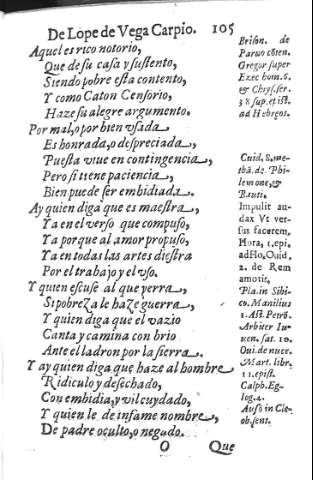 De Lope de Vega Carpio. 105
Aquel es rico notorio,
Que de su casa y sustento,
Siendo pobre esta contento,
Y como Caton Censorio,
Haze su alegre argumento.
Por mal, o por bien vsada
Es honrada, o despreciada,
Puesta viue en contingencia,
Pero si tiene paciencia,
Bien puede ser embidiada.
Ay quien diga que es maestra,
Ya en el verso que compuso,
Ya porque al amor propuso,
Ya en todas las artes diestra
Por el trabajo y el vso.
Y quien escuse al que yerra,
Si pobreza le haze guerra,
Y quien diga que el vazio
Canta y camina con brio
Ante el ladron por la sierra.
Y ay quien diga que haze al hombre
Ridiculo y desechado,
Con embidia, y vil cuydado,
Y quien le de infame nombre,
De padre oculto, o negado.
O Que
Brison. de
Paruo cõten.
Gregor super
Ezec hom. 5.
& Chrys. ser.
38 sup. epist.
ad Hebreos.
Ouid. 8. me-
tha. de Phi-
lemone, &
Bauti.
Impulit au-
dax Vt ver-
sus facerem,
Hora, 1. epi.
ad Ouid.
2. de Rem
amotis,
Pla. in Sibi-
co. Manilius
1. Ast. Petrõ.
Arbiter Iu-
uen. sat. 10.
Oui. de nuce.
Mart. libr.
11. epist.
Calph. Eg-
log. 4.
Auso in Cle-
ob. sent.